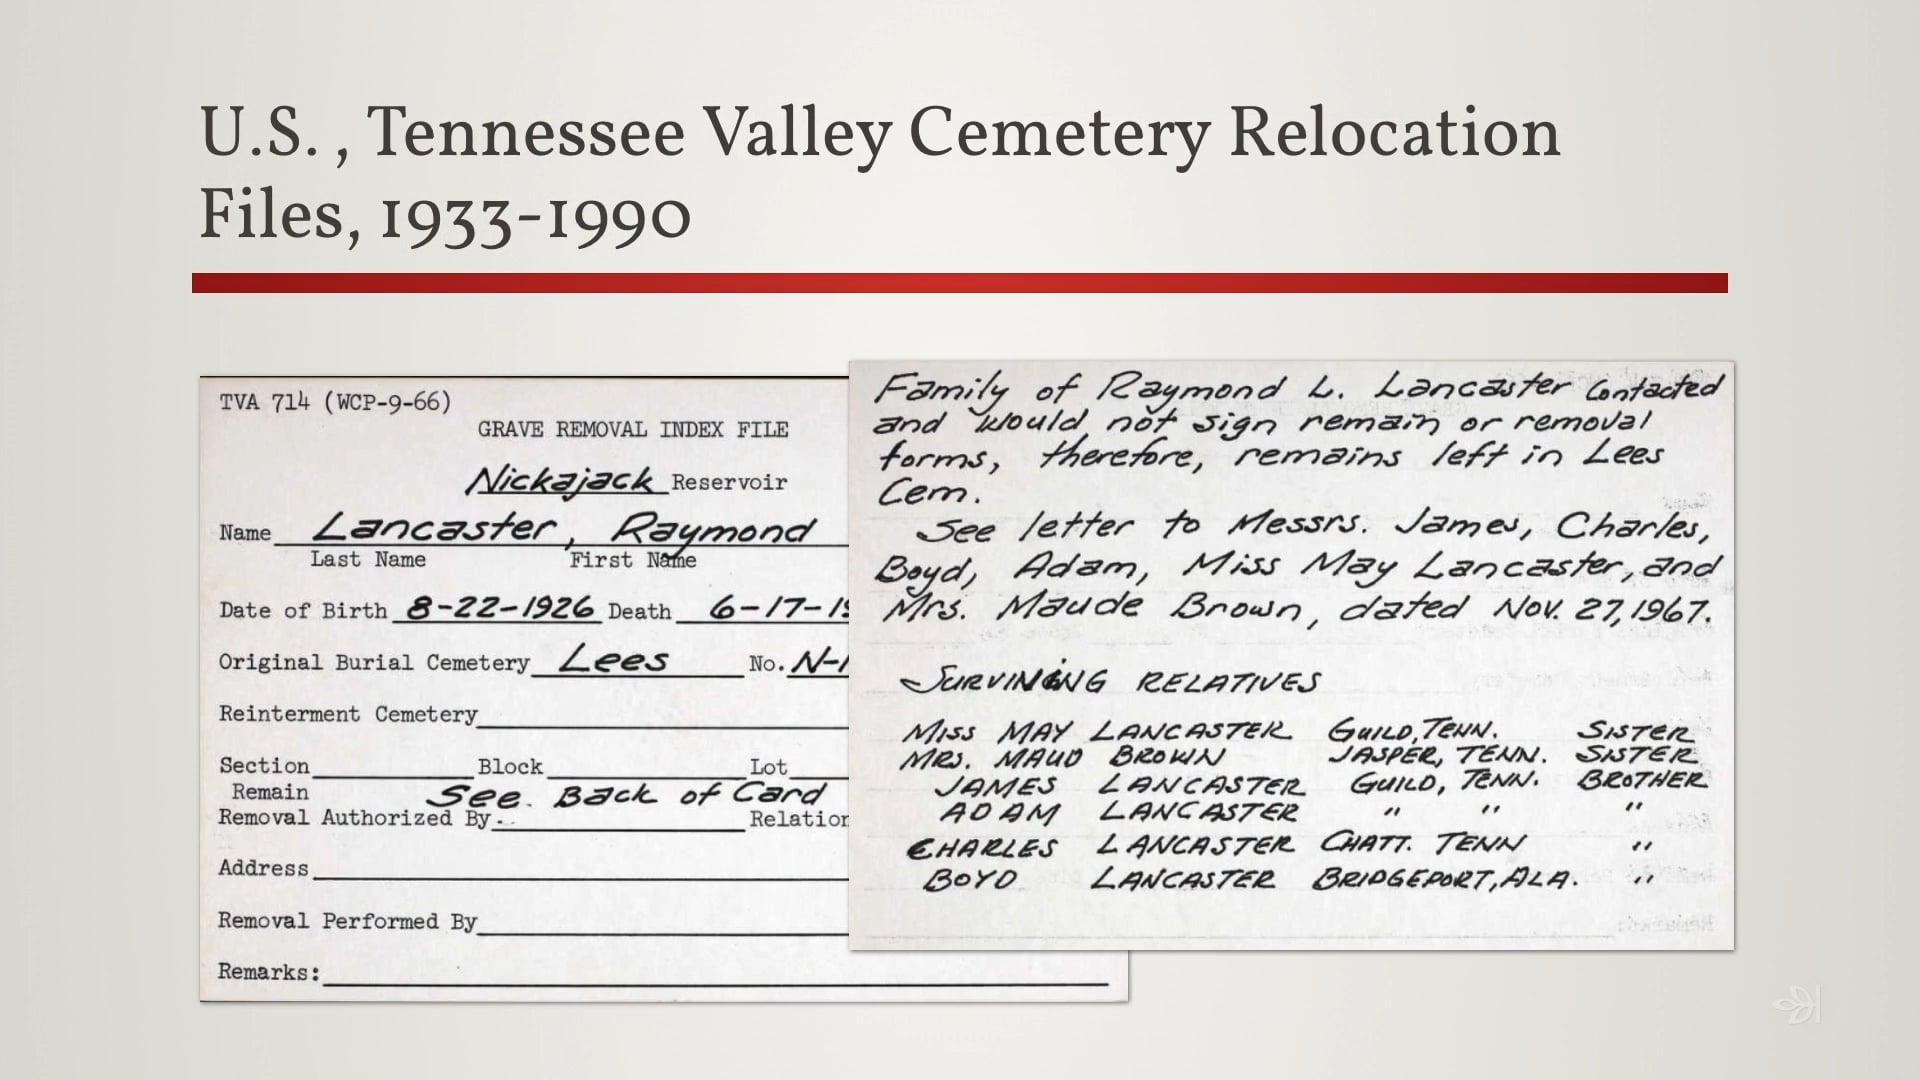 U.S. , Tennessee Valley Cemetery Relocation
Files, 1933-1990
TVA 714 (WCP-9-66)
GRAVE REMOVAL INDEX FILE
Nickajack Reservoir
Name Lancaster, Raymond
Last Name First Name
Date of Birth 8-22-1926 Death 6-17-19
Original Burial Cemetery Lees No. N-
Reinterment Cemetery
Section Block Lot
Remain See Back of Card
Removal Authorized By Relation
Address
Removal Performed By
Remarks:
Family of Raymond L. Lancaster contacted
and would not sign remain or removal
forms, therefore, remains left in Lees
Cem.
See letter to Messrs. James, Charles,
Boyd, Adam, Miss May Lancaster, and
Mrs. Maude Brown, dated Nov. 27, 1967.
SURVIVING RELATIVES
MISS MAY LANCASTER GUILD, TENN. SISTER
MRS. MAUD BROWN JASPER, TENN. SISTER
JAMES LANCASTER GUILD, TENN. BROTHER
ADAM LANCASTER " " "
CHARLES LANCASTER CHATT. TENN "
BOYD LANCASTER BRIDGEPORT, ALA. "